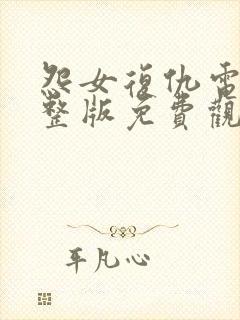 怨女復仇電
整版免費觀
平凡心